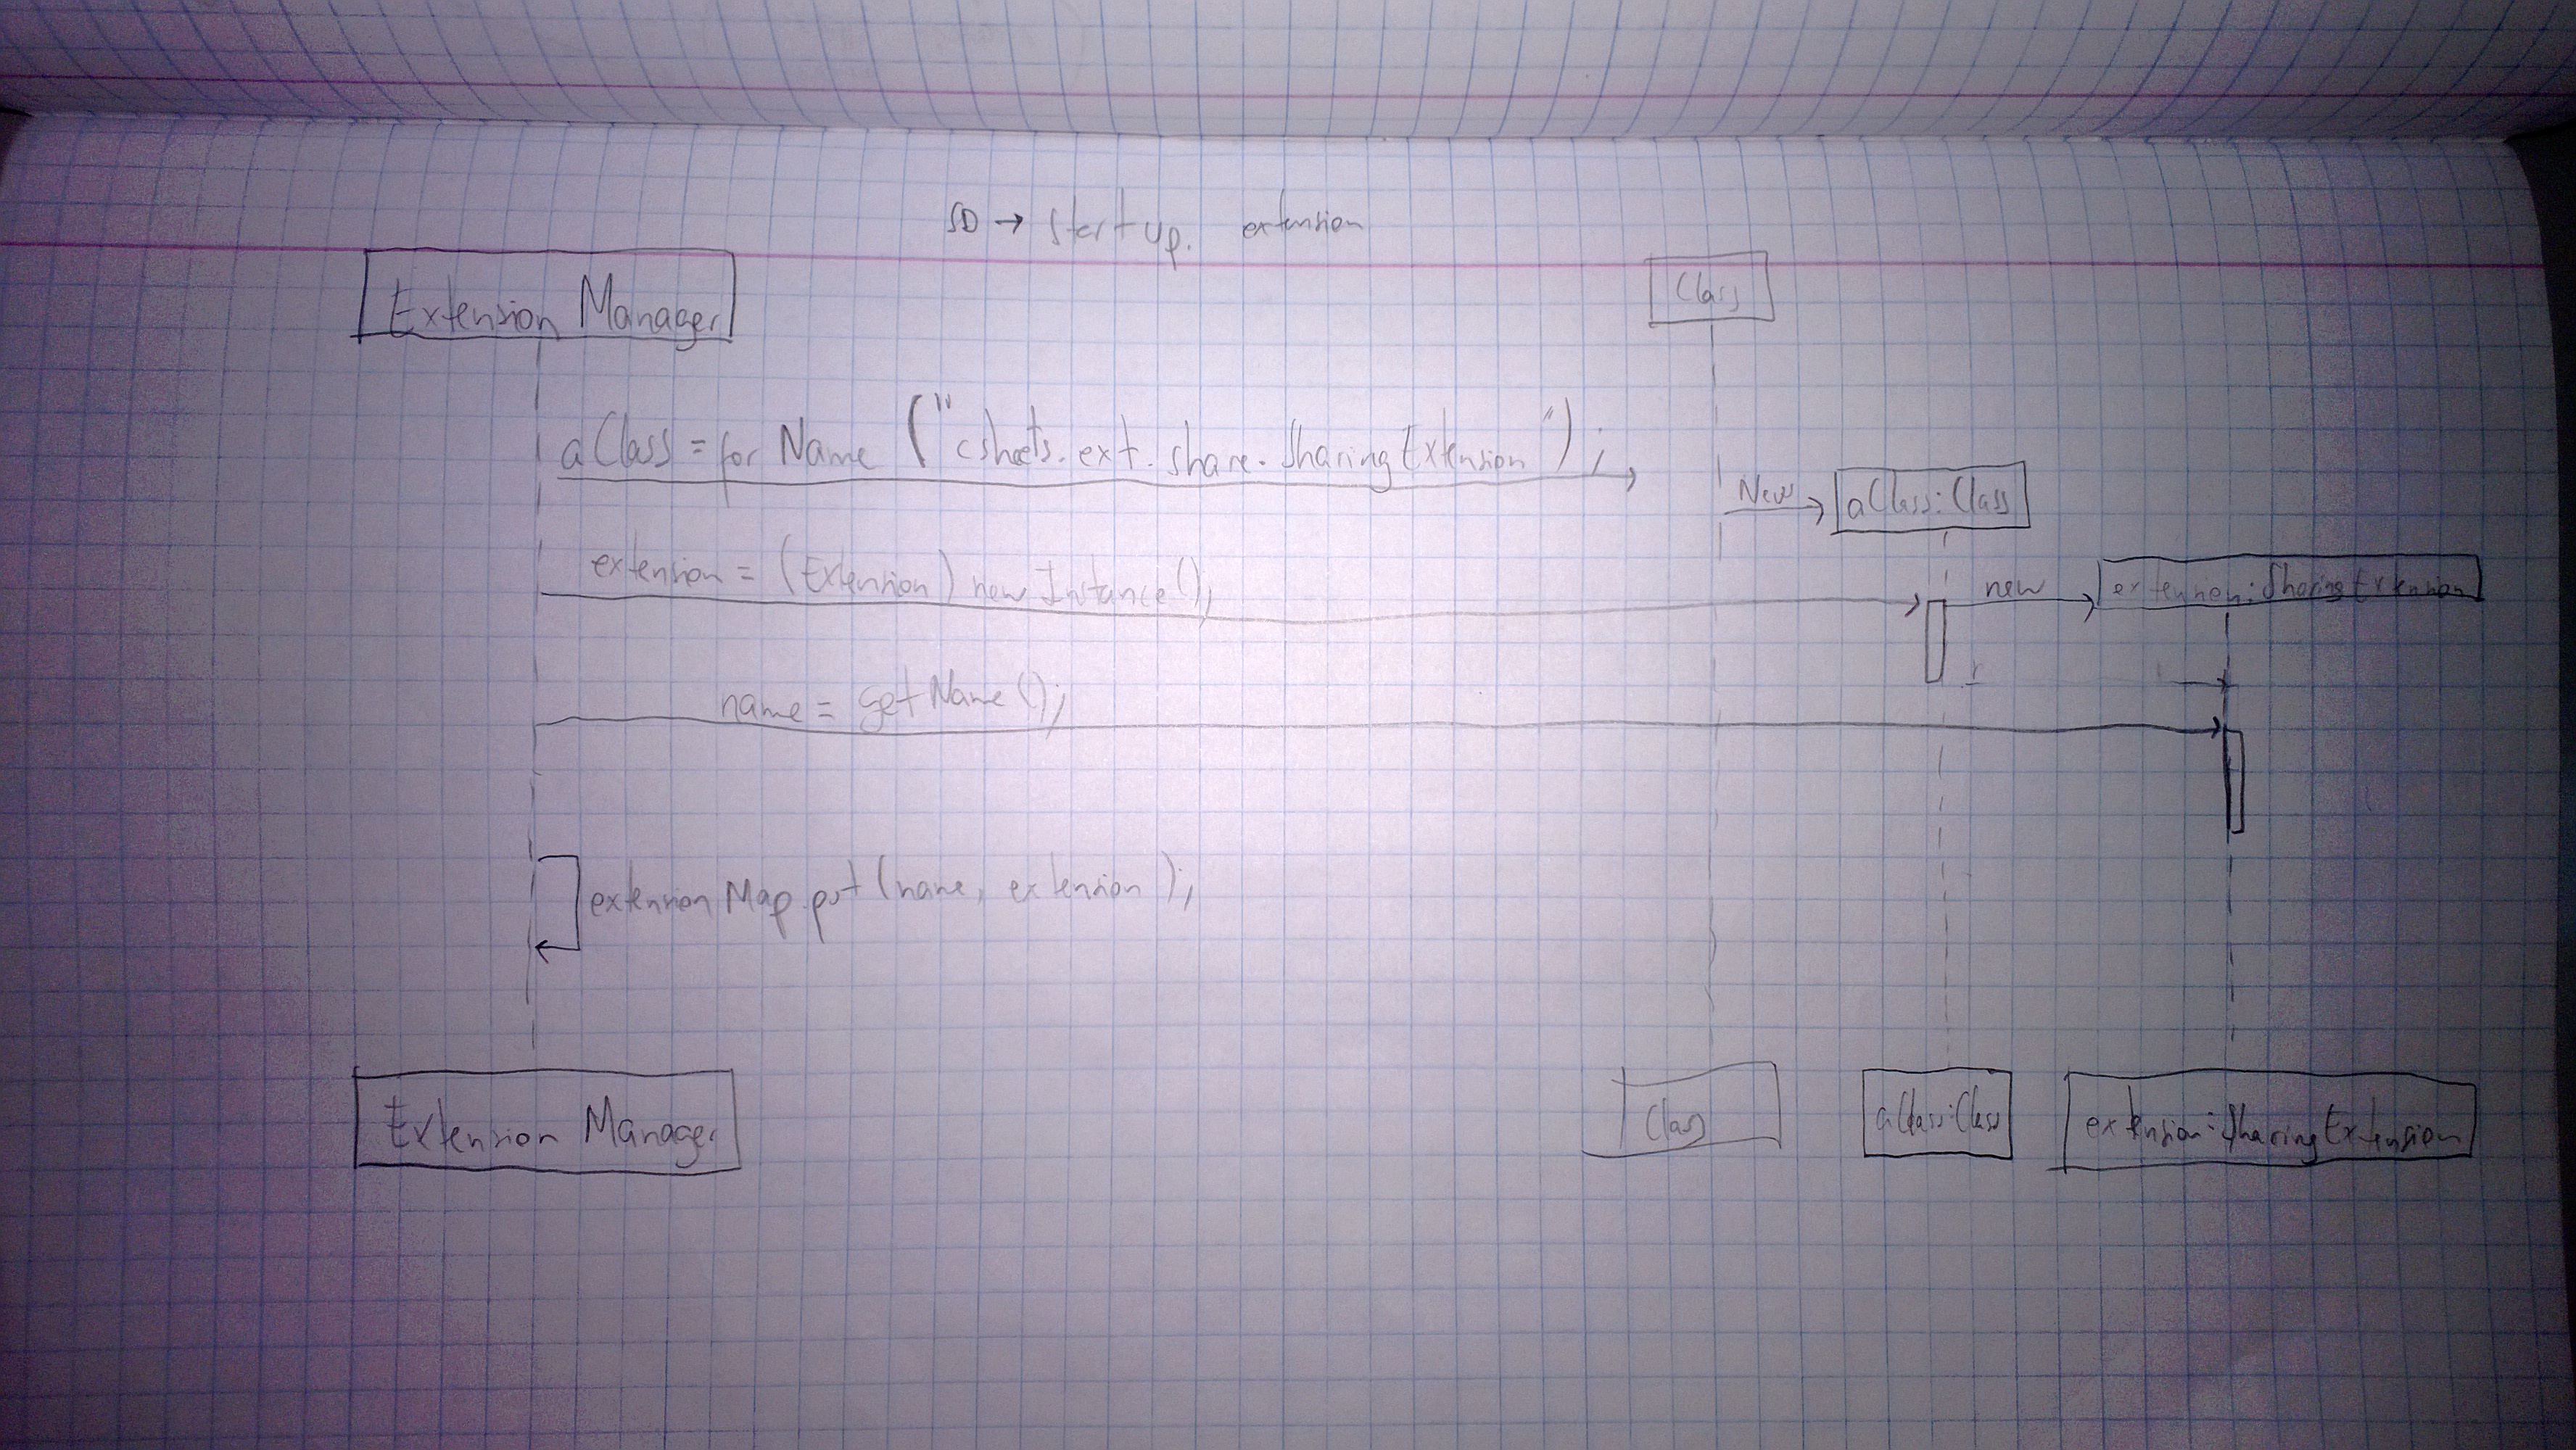 SD → Startup. extension
Extension Manager
Class
aClass = forName ("csheets.ext.share.SharingExtension");
New
aClass:Class
extension = (Extension) newInstance();
new
extension:SharingExtension
name = getName();
extensionMap.put(name, extension);
Extension Manager
Class
aClass:Class
extension:SharingExtension